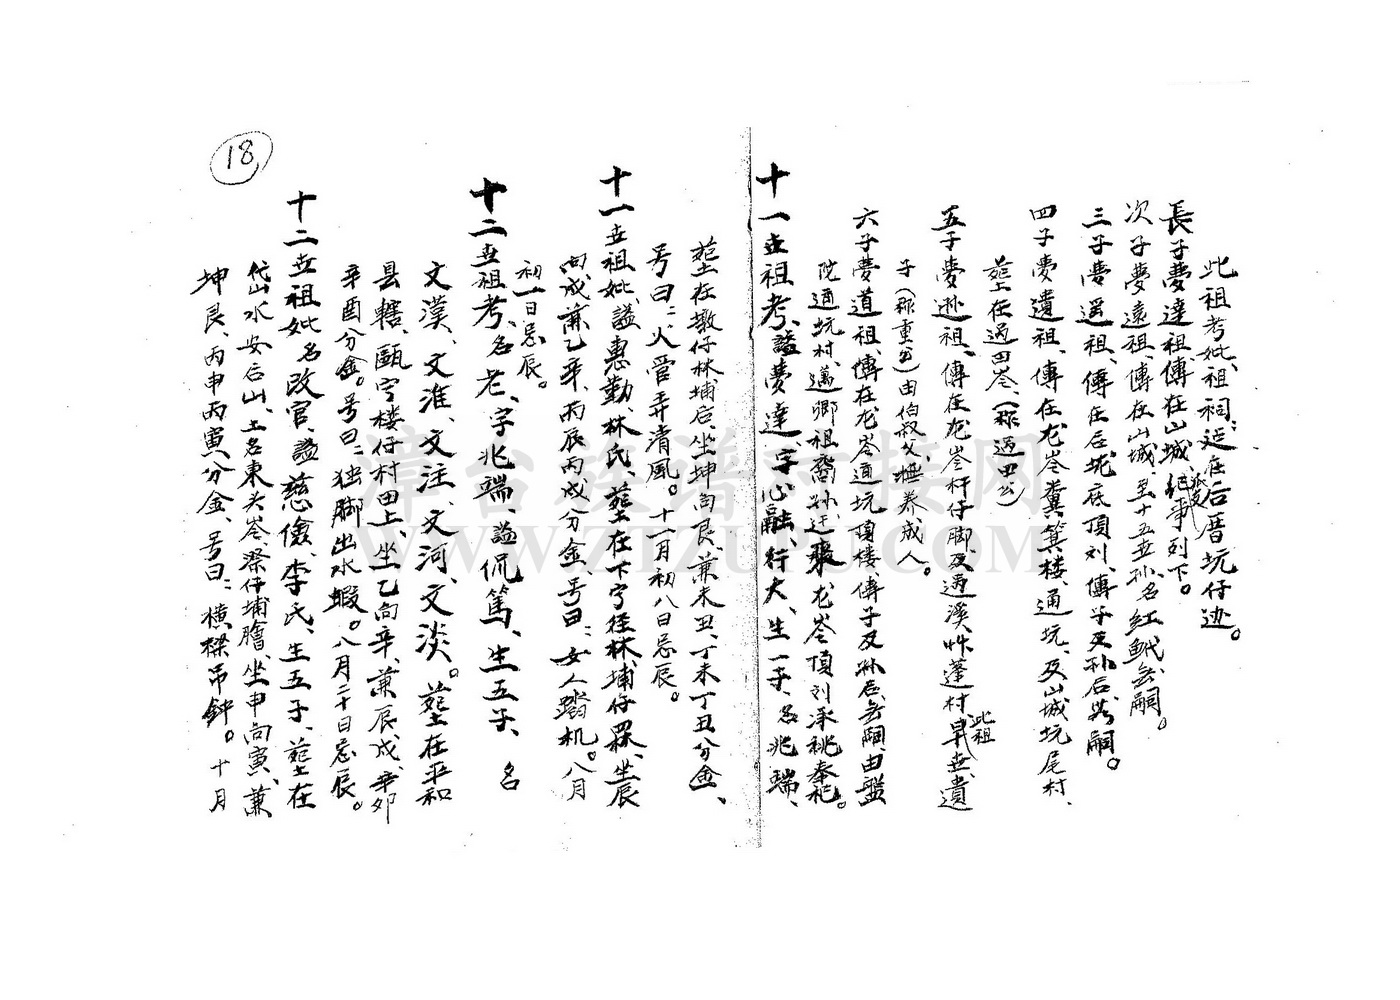 此祖考妣、祖祠:延在后厝坑仔边。
長子夢達祖、傳在山城、派及紀事列下。
次子夢遠祖、傳在山城、至十五世孙、名紅 無嗣。
三子夢遥祖、傳在后坑底頂刘、傳子及孙后、無嗣。
四子夢遺祖、傳在龙岺糞箕楼、通坑、及山城坑尾村、
塟在通田岺、(称迈田公)
五子夢遜祖、傳在龙岺杆仔脚及通溪竹蓬村、此祖早世、遺
子(称重公)由伯叔父撫养成人。
六子夢道祖、傳在龙岺通坑頂楼、傳子及孙后、無嗣、由盤
陀通坑村、邁卿祖裔孙迁来龙岺頂刘承祧奉祀。
十一世祖考、謚夢達、字心融、行大、生一子、名兆端、
塟在墩仔林埔后、坐坤向艮、兼未丑、丁未丁丑分金、
号曰:火管弄清風。十一月初八日忌辰。
十一世祖妣、謚惠勤、林氏、塟在下字径林埔仔
向戍兼乙辛、丙辰丙戍分金、号曰:女人踏机。八月
初一日忌辰。
十二世祖考、名老、字兆端、謚侃篤、生五子、名
文漢、文淮、文注、文河、文淡。塟在平和
县轄、頤字楼仔村田上、坐乙向辛、兼辰戍、辛卯
辛酉分金。号曰:独脚出水蝦。八月二十日忌辰。
十二世祖妣名改官、謚慈儉、李氏、生五子、塟在
岱山水安后山、土名東头岺寮仔埔 、坐申向寅、兼
坤艮、丙申丙寅分金、号曰:横樑吊鐘。十月
18
漳台族谱对接网
WWW.ZIZUPU.COM